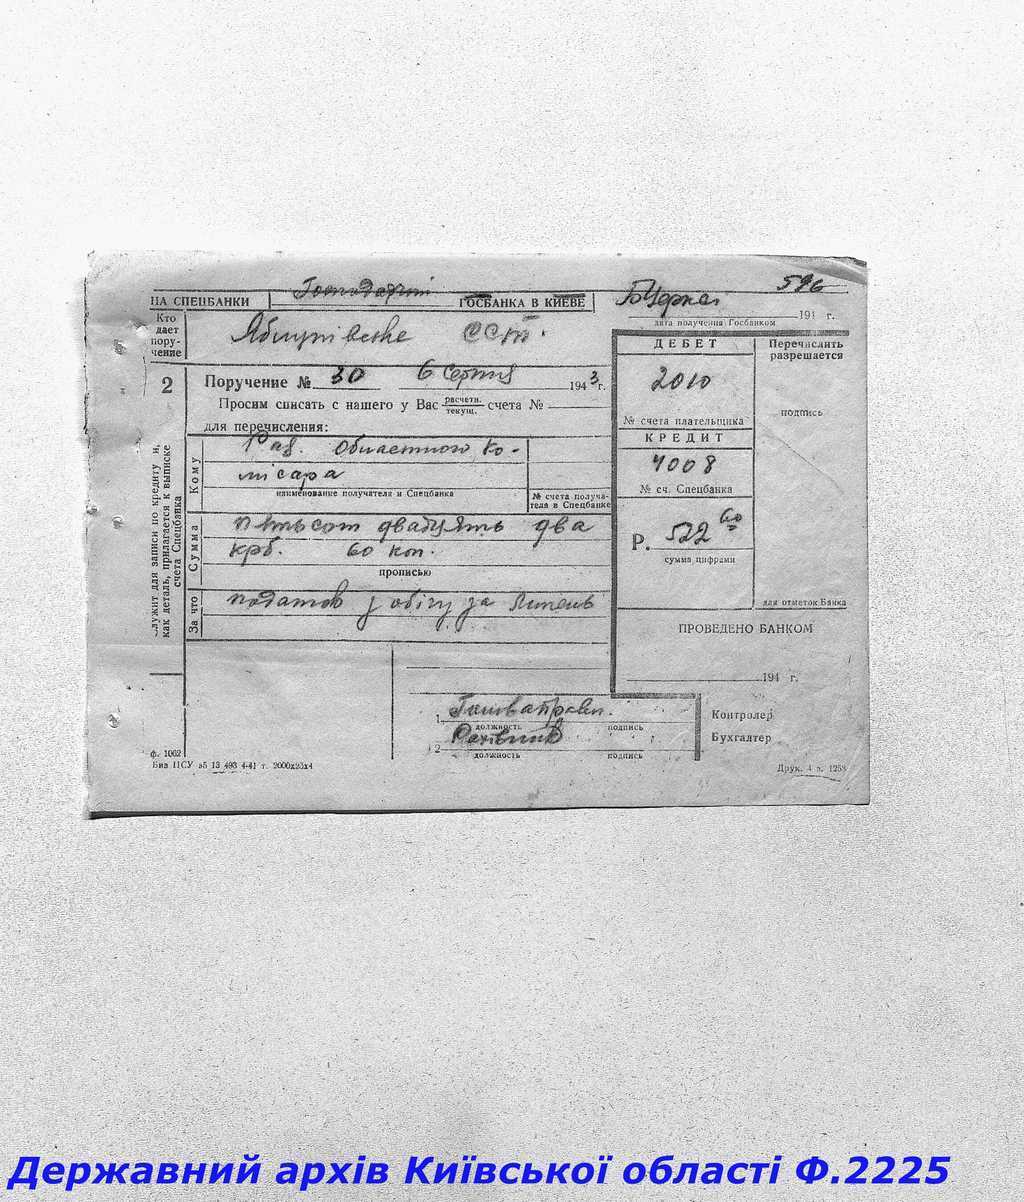 596
Господарчі
Б Церкві
НА СПЕЦБАНКИ ГОСБАНКА В КИЕВЕ
194 г.
дата получения Госбанком
Кто дает пору-чение
Яблунівське ССТ.
2
Поручение № 30 6 Серпня 1943 г.
Просим списать с нашего у Вас расчетн. текущ. счета №
для перечисления:
Кому
Рах. Обласного Ко-
місара
наименование получателя и Спецбанка
№ счета получа-
теля в Спецбанке
Сумма
пятьсот двадцять два
крб. 60 коп.
прописью
За что
податок з обігу за Липень
служит для записи по кредиту и,
как деталь, прилагается к выписке
счета Спецбанка
ДЕБЕТ
2010
№ счета плательщика
КРЕДИТ
4008
№ сч. Спецбанка
Р. 522 60
сумма цифрами
Перечислить
разрешается
подпись
для отметок Банка
ПРОВЕДЕНО БАНКОМ
194 г.
1
должность подпись
Рахівник
2
должность подпись
Контролер
Бухгалтер
ф. 1002
Друк. 4 з. 1258
Державний архів Київської області Ф.2225